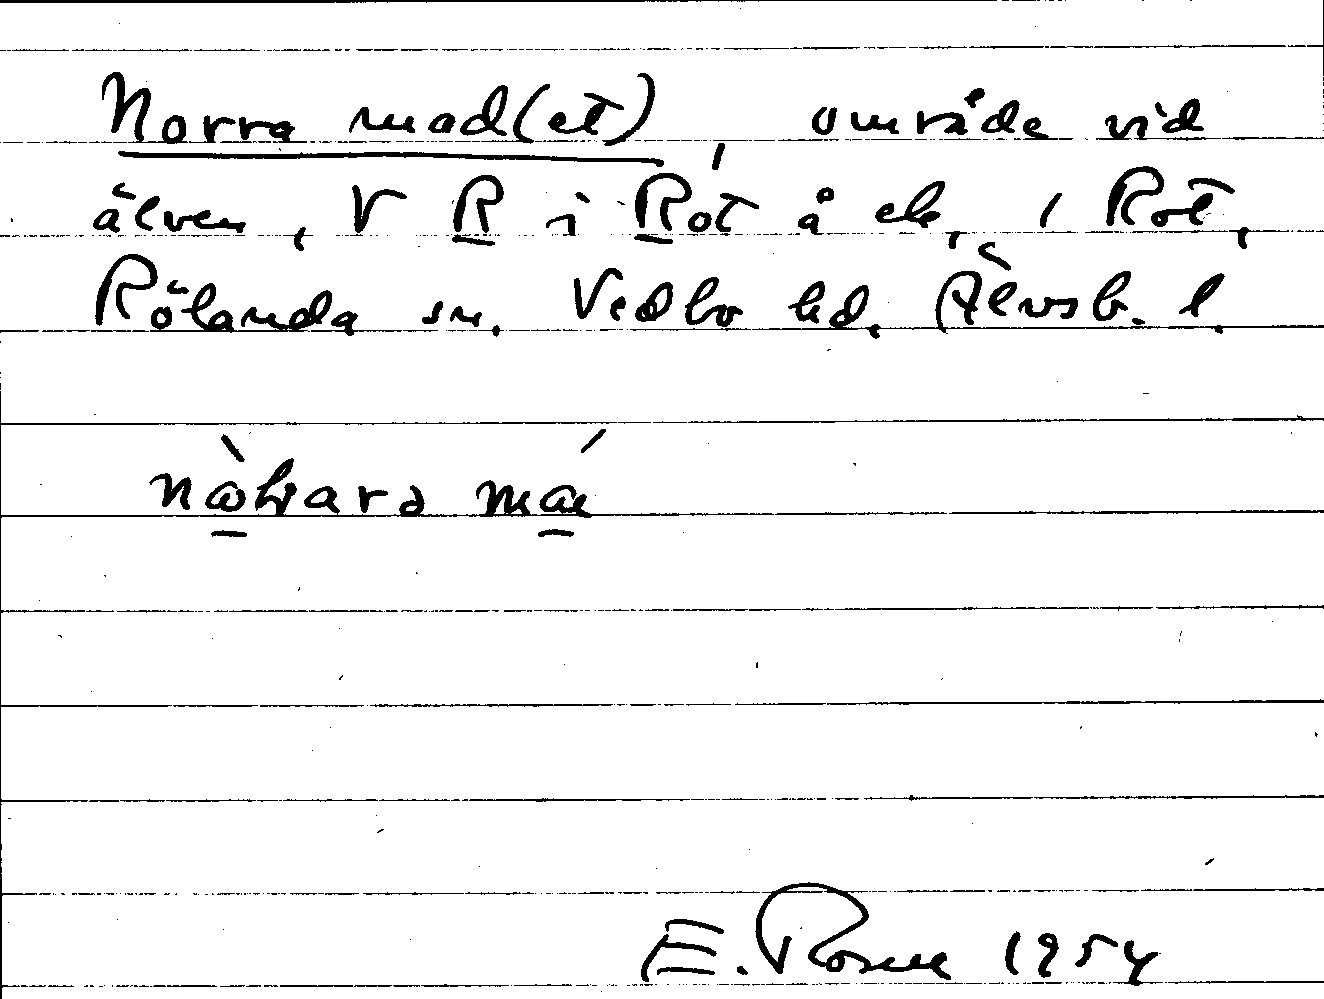 Norra mad(et), område vid
älven, V R i Rot å ek, i Rot,
Rölanda sn. Vedbo hd. Älvsb. l.
E. Rosell 1954